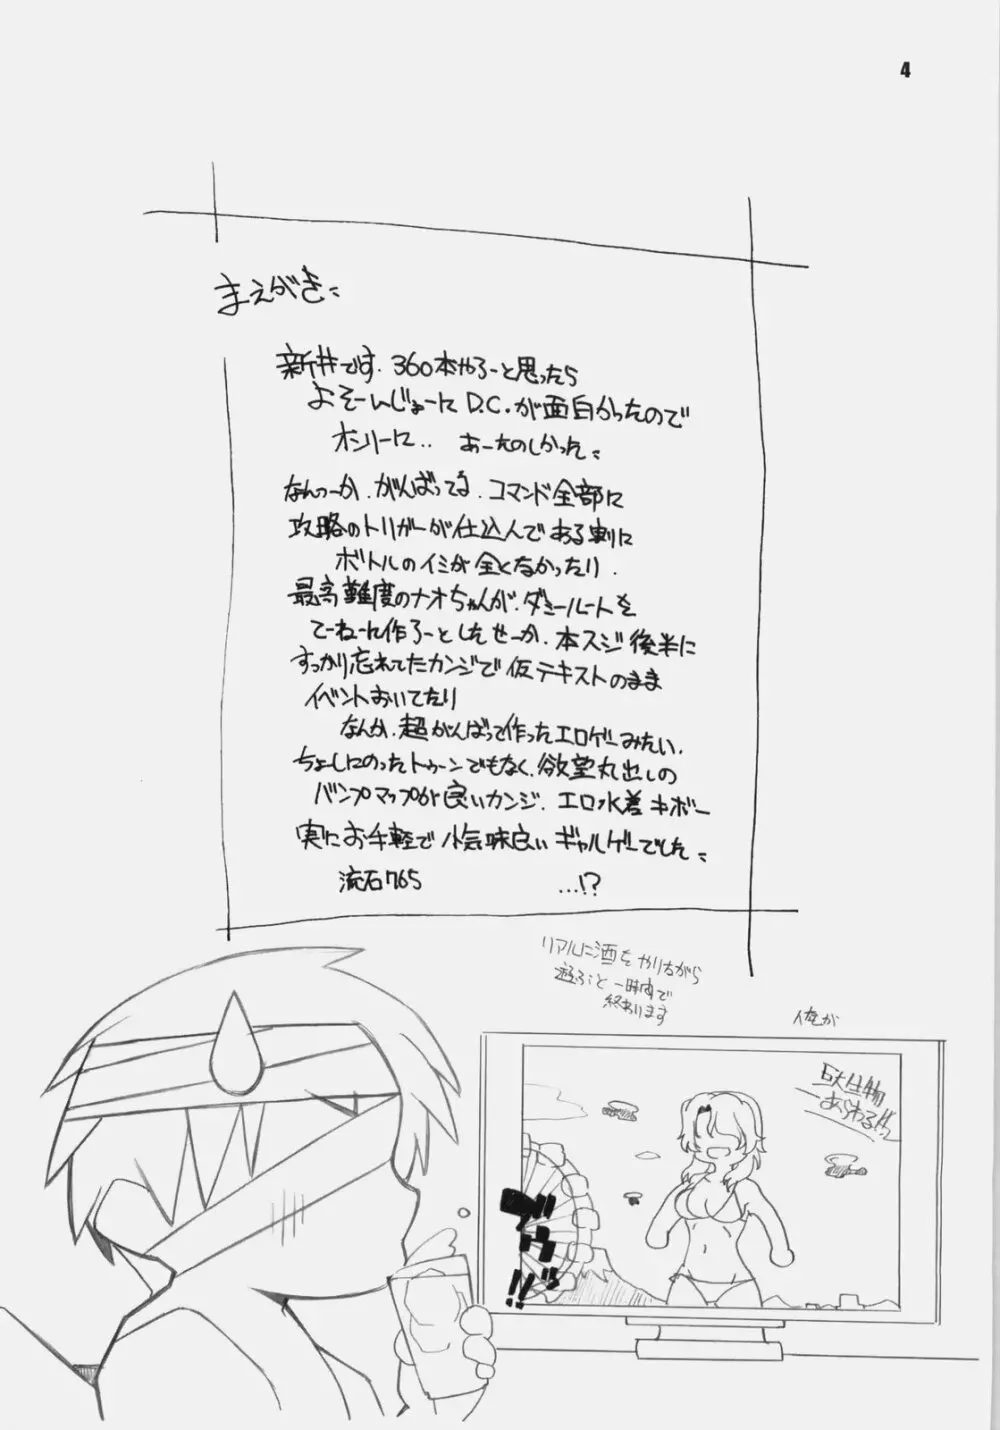 4
まえがき:
新井です. 360本やろーと思ったら
よそーんじょーに D.C. が面白かったので
オンリーに.. あーたのしかった:
なんつーか. がんばってる. コマンド全部に
攻略のトリガーが仕込んである割に
ボトルのイミが全くなかったり.
最高難度のナオちゃんが. ダミールートを
てーねーに作ろーとしたせーか. 本スジ後半に
すっかり忘れてたカンジで仮テキストのまま
イベントおいてたり
なんか. 超がんばって作ったエロゲーみたい.
ちょーしにのったトゥーンでもなく. 欲望丸出しの
バンプマップが良いカンジ. エロ水着キボー
実にお手軽で小気味良いギャルゲーでした:
流石765 ...!?
リアルに酒をやりながら
遊ぶと一瞬で
終わります
俺が
巨大生物
あらわる!!